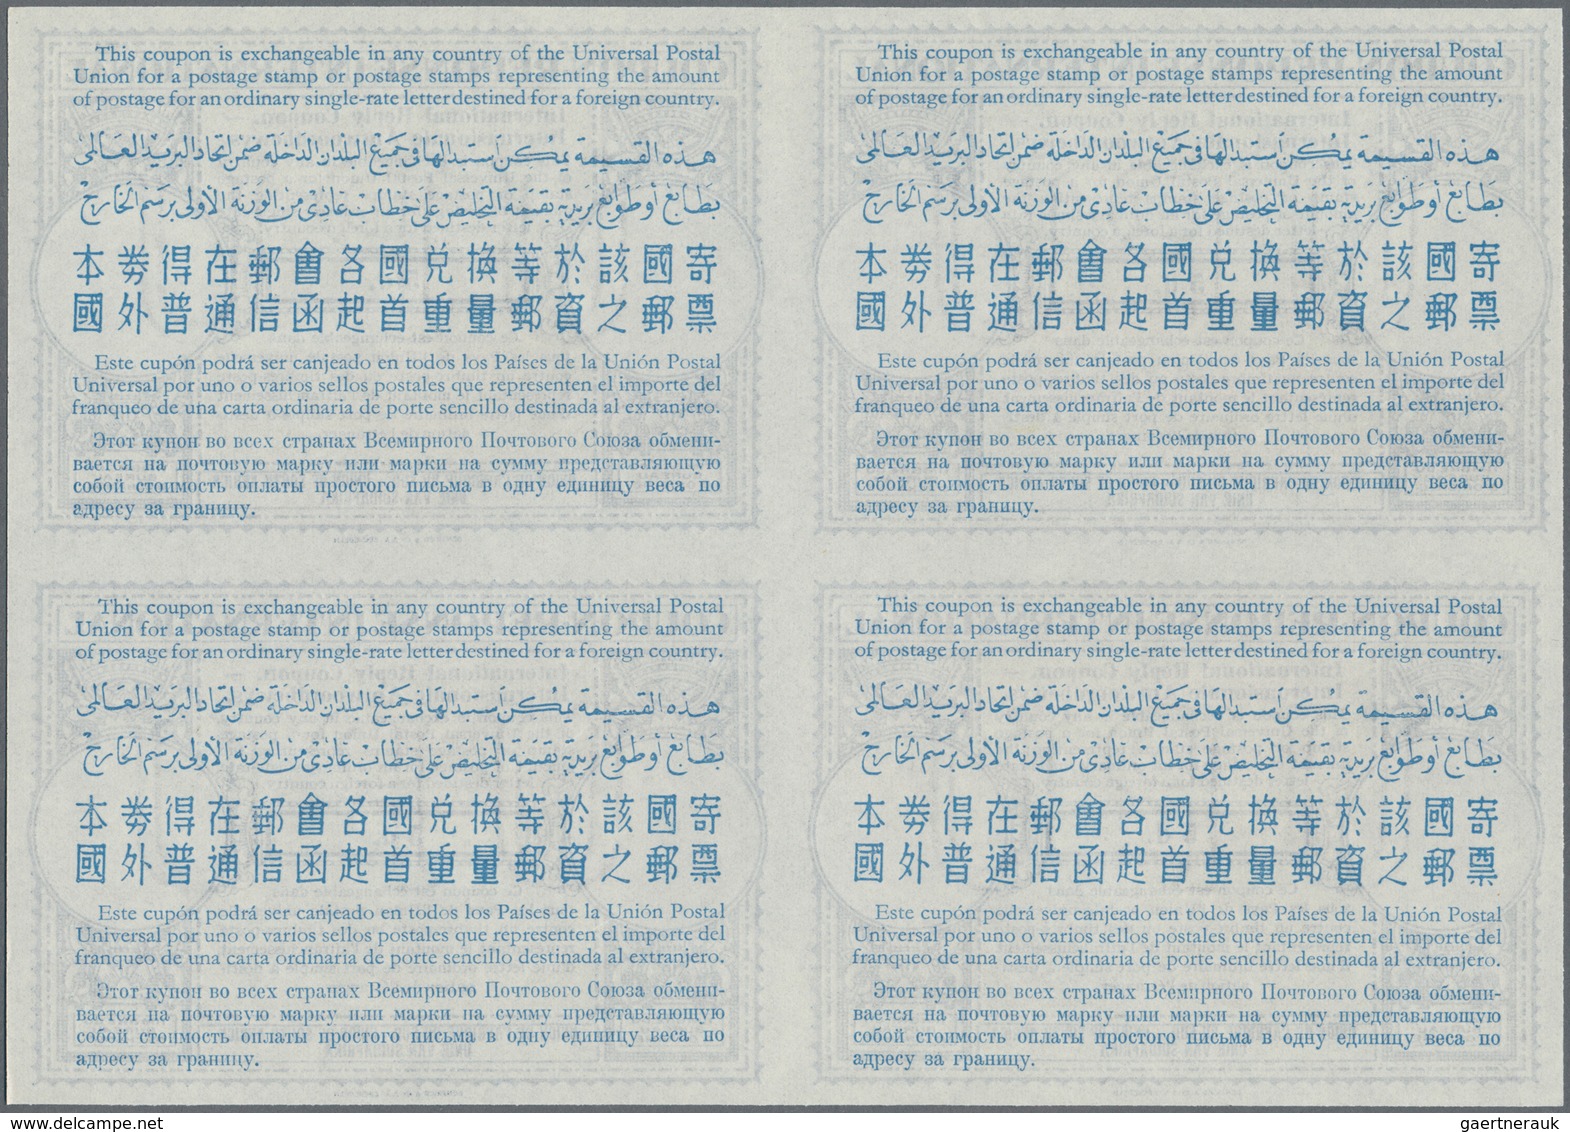 This coupon is exchangeable in any country of the Universal Postal
Union for a postage stamp or postage stamps representing the amount
of postage for an ordinary single-rate letter destined for a foreign country.
هذه القسيمة يمكن استبدالها في جميع البلدان الداخلة ضمن اتحاد البريد العالمى
بطابع أو طوابع بريدية بقيمة التخليص على خطاب عادى من الوزنة الأولى برسم الخارج
本劵得在郵會各國兌換等於該國寄
國外普通信函起首重量郵資之郵票
Este cupón podrá ser canjeado en todos los Países de la Unión Postal
Universal por uno o varios sellos postales que representen el importe del
franqueo de una carta ordinaria de porte sencillo destinada al extranjero.
Этот купон во всех странах Всемирного Почтового Союза обмени-
вается на почтовую марку или марки на сумму представляющую
собой стоимость оплаты простого письма в одну единицу веса по
адресу за границу.
This coupon is exchangeable in any country of the Universal Postal
Union for a postage stamp or postage stamps representing the amount
of postage for an ordinary single-rate letter destined for a foreign country.
هذه القسيمة يمكن استبدالها في جميع البلدان الداخلة ضمن اتحاد البريد العالمى
بطابع أو طوابع بريدية بقيمة التخليص على خطاب عادى من الوزنة الأولى برسم الخارج
本劵得在郵會各國兌換等於該國寄
國外普通信函起首重量郵資之郵票
Este cupón podrá ser canjeado en todos los Países de la Unión Postal
Universal por uno o varios sellos postales que representen el importe del
franqueo de una carta ordinaria de porte sencillo destinada al extranjero.
Этот купон во всех странах Всемирного Почтового Союза обмени-
вается на почтовую марку или марки на сумму представляющую
собой стоимость оплаты простого письма в одну единицу веса по
адресу за границу.
This coupon is exchangeable in any country of the Universal Postal
Union for a postage stamp or postage stamps representing the amount
of postage for an ordinary single-rate letter destined for a foreign country.
هذه القسيمة يمكن استبدالها في جميع البلدان الداخلة ضمن اتحاد البريد العالمى
بطابع أو طوابع بريدية بقيمة التخليص على خطاب عادى من الوزنة الأولى برسم الخارج
本劵得在郵會各國兌換等於該國寄
國外普通信函起首重量郵資之郵票
Este cupón podrá ser canjeado en todos los Países de la Unión Postal
Universal por uno o varios sellos postales que representen el importe del
franqueo de una carta ordinaria de porte sencillo destinada al extranjero.
Этот купон во всех странах Всемирного Почтового Союза обмени-
вается на почтовую марку или марки на сумму представляющую
собой стоимость оплаты простого письма в одну единицу веса по
адресу за границу.
This coupon is exchangeable in any country of the Universal Postal
Union for a postage stamp or postage stamps representing the amount
of postage for an ordinary single-rate letter destined for a foreign country.
هذه القسيمة يمكن استبدالها في جميع البلدان الداخلة ضمن اتحاد البريد العالمى
بطابع أو طوابع بريدية بقيمة التخليص على خطاب عادى من الوزنة الأولى برسم الخارج
本劵得在郵會各國兌換等於該國寄
國外普通信函起首重量郵資之郵票
Este cupón podrá ser canjeado en todos los Países de la Unión Postal
Universal por uno o varios sellos postales que representen el importe del
franqueo de una carta ordinaria de porte sencillo destinada al extranjero.
Этот купон во всех странах Всемирного Почтового Союза обмени-
вается на почтовую марку или марки на сумму представляющую
собой стоимость оплаты простого письма в одну единицу веса по
адресу за границу.
delcampe.net
gaertnerauk